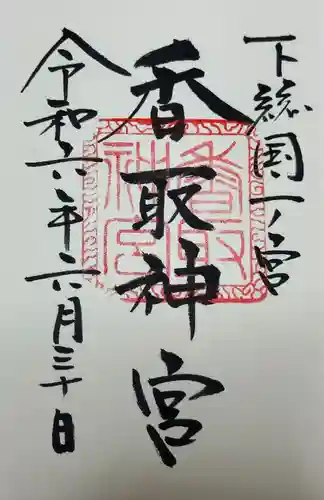 下総国一ノ宮
香取神宮
令和六年六月三十日
香取
神宮